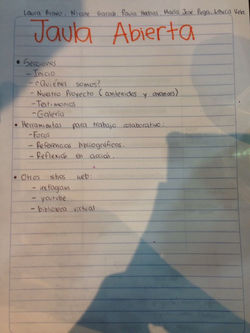 Laura Bravo, Nicole Garcia, Paula Mateus, Maria José Puga,
Jaula Abierta
• Secciones
- Inicio
- ¿Quiénes somos?
- Nuestro Proyecto (contenidos y avances)
- Testimonios
- Galería
• Herramientas para trabajo colaborativo:
- Foros
- Referencias bibliográficas.
- Reflexión en acción.
• Otros sitios web:
- instagram
- youtube
- biblioteca virtual